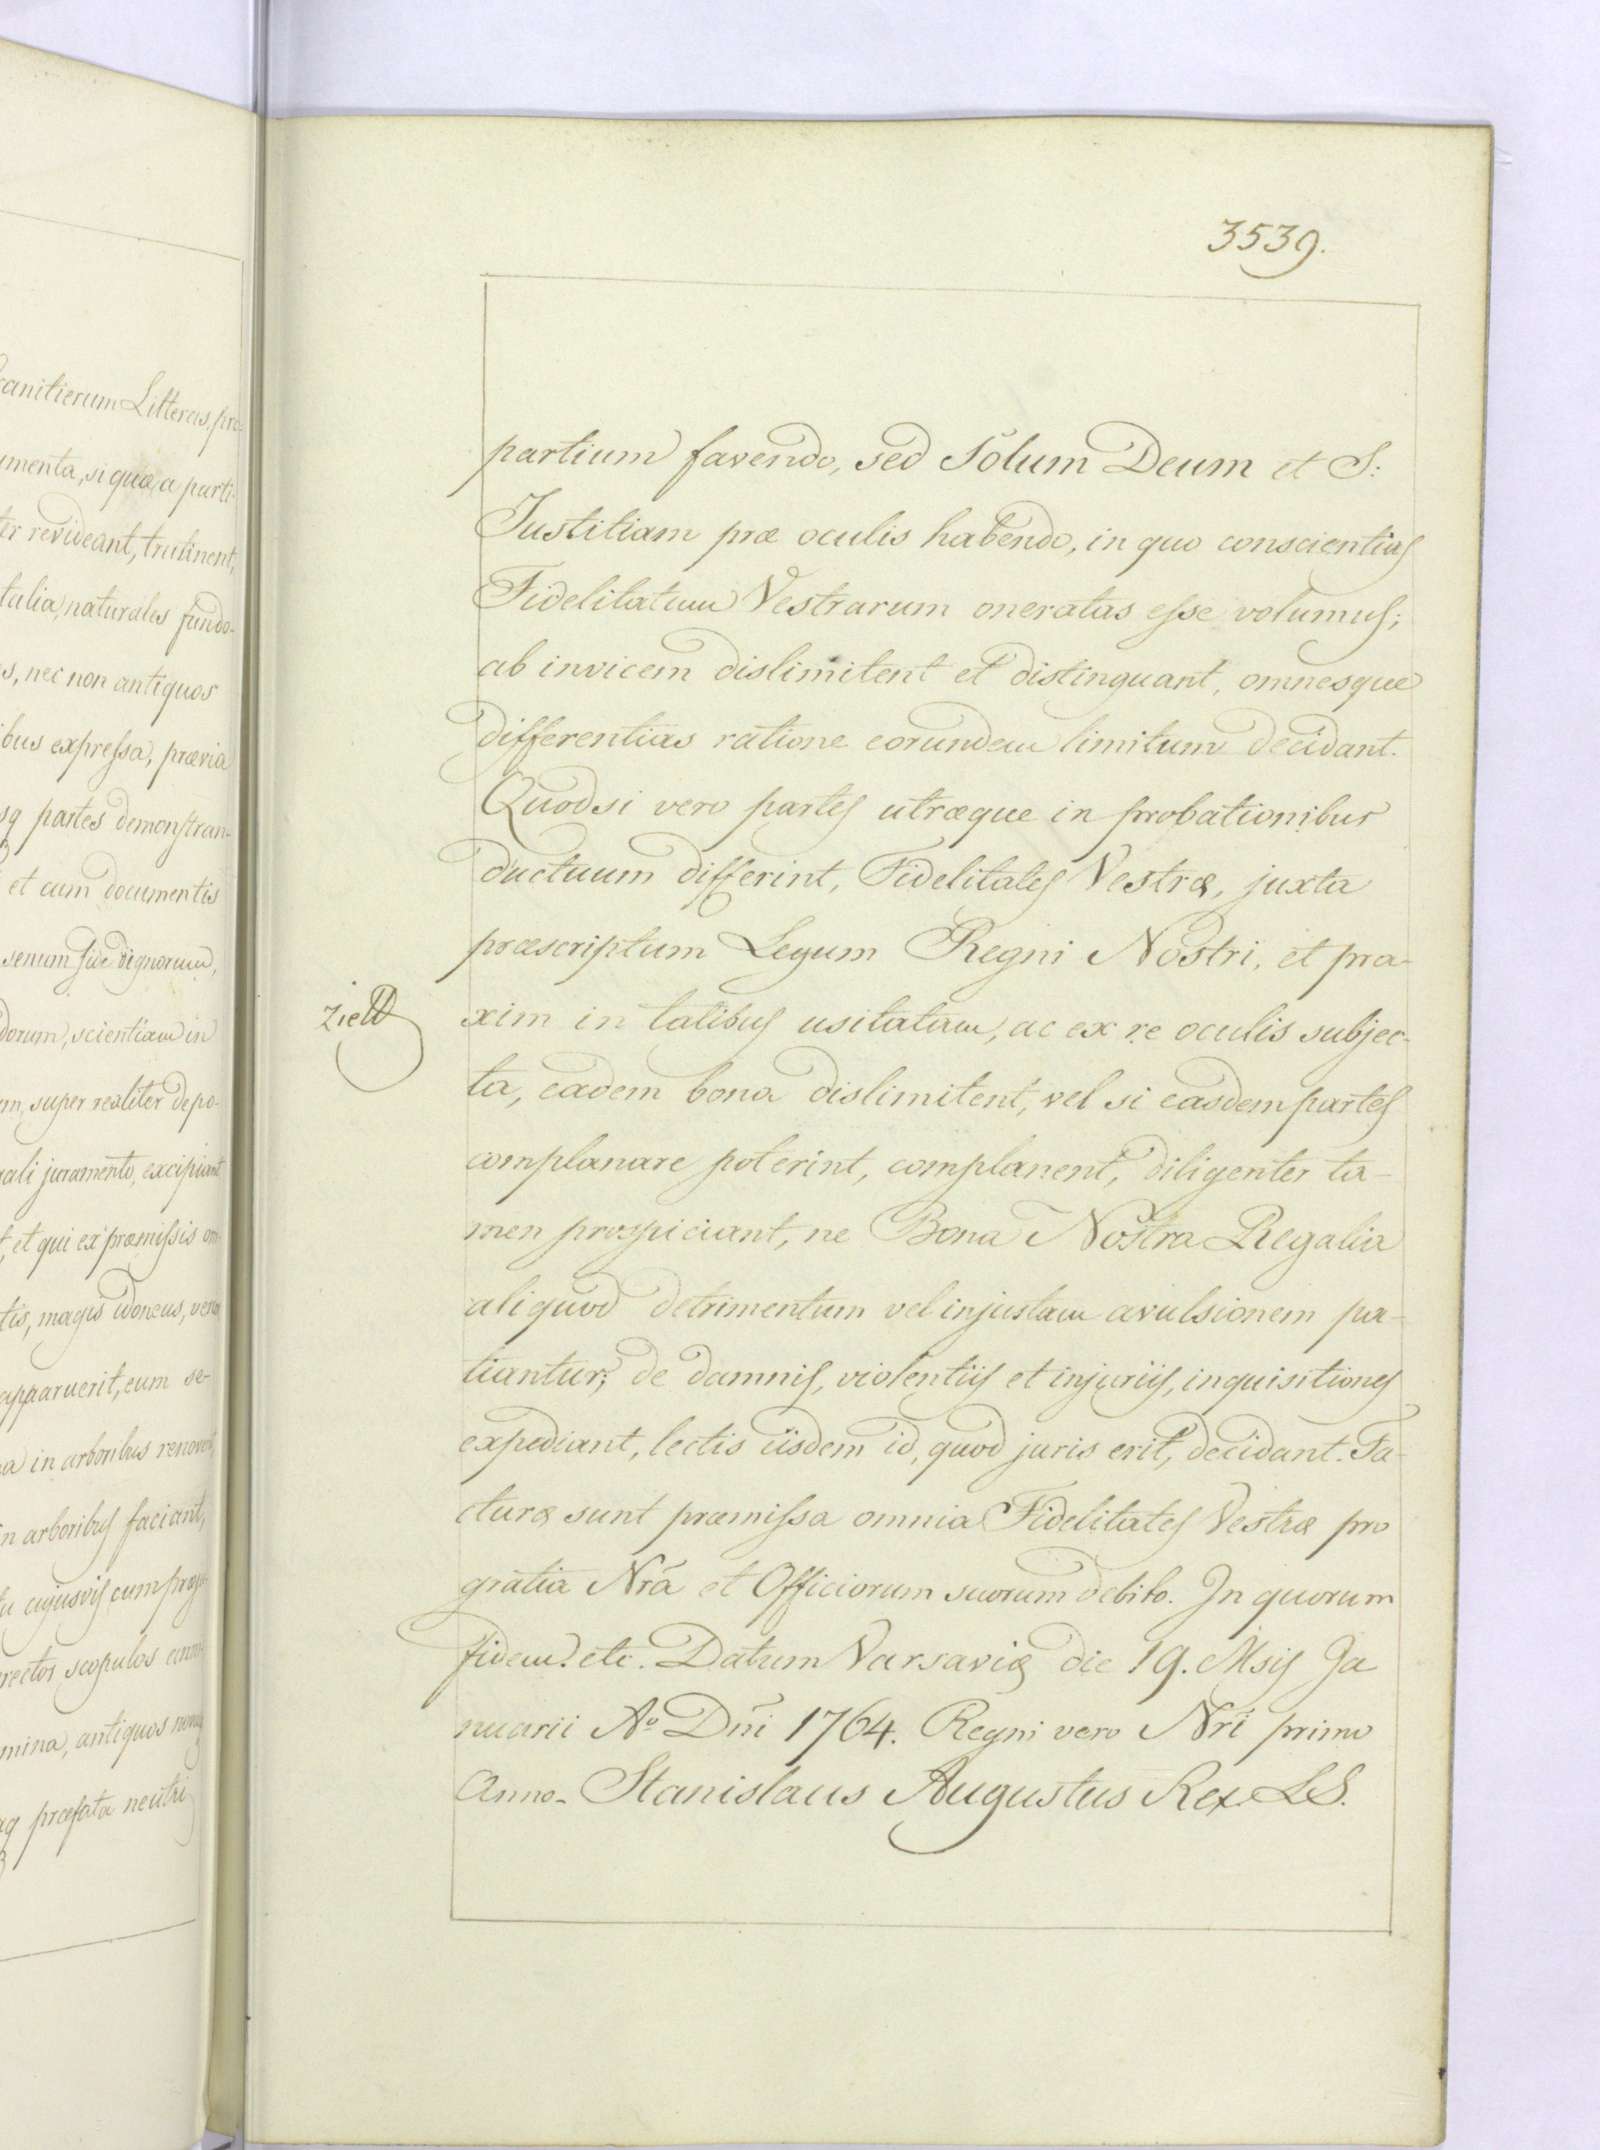 canitierum Litteras, pro-
umenta, si quæ a parti-
ter revideant, trutinent,
talia, naturales fundo-
s, nec non antiquos
ibus expressa, prævia
sq partes demonstran-
et cum documentis
senum fide dignorum,
dorum, scientiam in
m, super realiter depo-
rali juramento, excipiant
et qui ex præmissis om-
tis, magis idoneus, verus
apparuerit, eum se-
a in arboribus renovent,
in arboribus faciant,
cujusvis cum
rectos scopulos
mina, antiquos
præfata neutri
3539.
partium favendo, sed Solum Deum et S:
Justitiam præ oculis habendo, in quo conscientias
Fidelitatum Vestrarum oneratas esse volumus;
ab invicem dislimitent et distinguant, omnesque
differentias ratione eorundem limitum decidant.
Quodsi vero partes utræque in probationibus
ductuum differint, Fidelitates Vestræ, juxta
præscriptum Legum Regni Nostri, et pra-
xim in talibus usitatam, ac ex re oculis subjec-
ta, eadem bona dislimitent, vel si easdem partes
complanare poterint, complanent, diligenter ta-
men prospiciant, ne Bona Nostra Regalia
aliquod detrimentum vel injustam avulsionem pa-
tiantur; de damnis, violentiis et injuriis, inquisitiones
expediant, lectis iisdem id, quod juris erit, decidant. Fa-
cturæ sunt præmissa omnia Fidelitates Vestræ pro
gratia Nrã et Officiorum suorum debito. In quorum
fidem. etc. Datum Varsaviæ die 19. Msis Ja
nuarii Aº Dñi 1764. Regni vero Nri primo
Anno. Stanislaus Augustus Rex. LS.